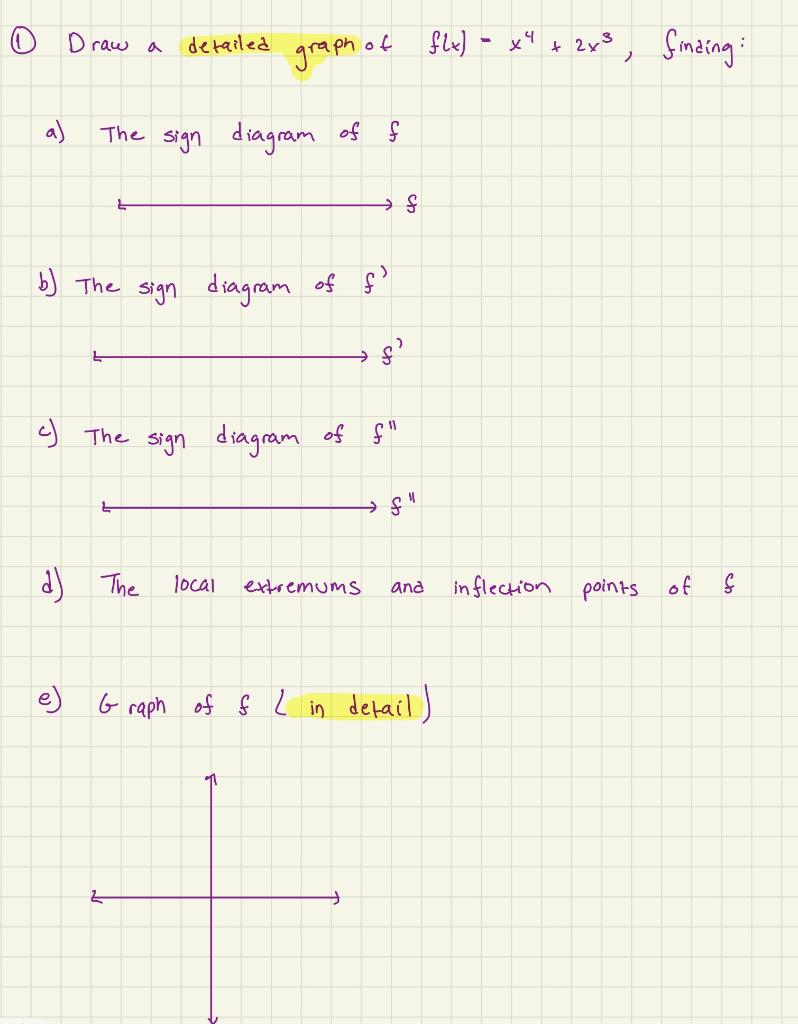 ① Draw a detailed graph of f(x) = x⁴ + 2x³, finding:
a) The sign diagram of f
f
b) The sign diagram of f'
f'
c) The sign diagram of f"
f"
d) The local extremums and inflection points of f
e) Graph of f (in detail)